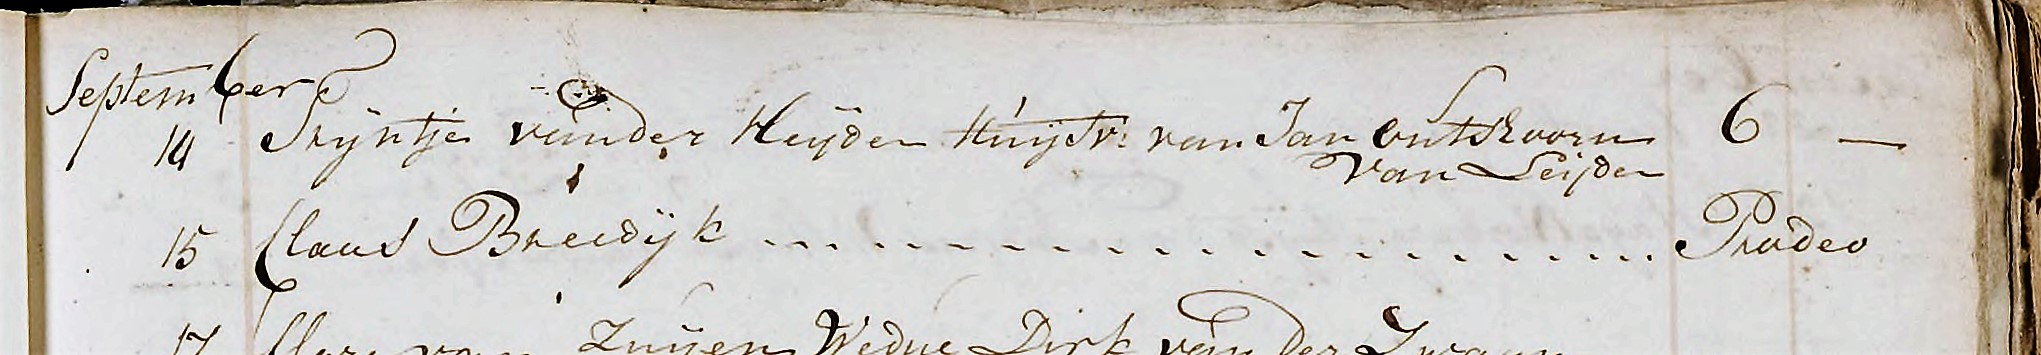 September
14 Trÿntje vander Heÿden Huijsvr: van Jan Ontshoorn 6 —
van Leijden
15 Claas Breedÿk Prodeo
17 van Zuijen Wedue Dirk van der Zwaan